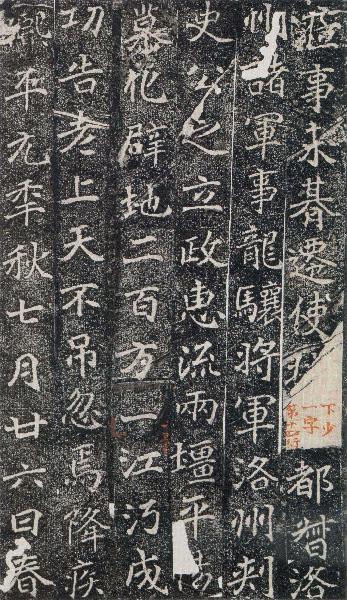 蒞事未朞遷使持都督洛
州諸軍事龍驤將軍洛州刾
史公之立政惠流兩壃平
慕化辟地二百方一江沔成
功告老上天不吊忽焉降疾
熙平元年秋七月廿六日春
下少
一字